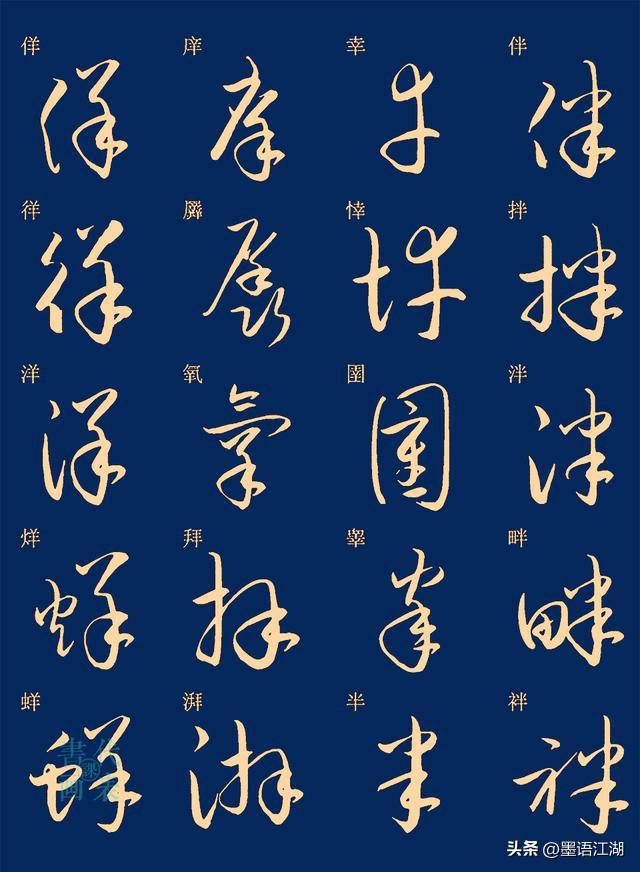 佯 庠 幸 伴
徉 羼 悻 拌
洋 氧 圉 泮
烊 拜 睾 畔
蛘 湃 半 袢
头条 @墨语江湖